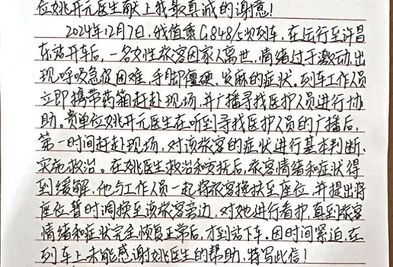 位姚开元医生献上我最真诚的谢意！
2024年12月7日，我值乘G848/5次列车，在运行至许昌
东站开车后，一名女性旅客因家人离世，情绪过于激动，出
现呼吸急促困难，手脚僵硬、发麻的症状，列车工作人员
立即携带药箱赶赴现场，并广播寻找医护人员进行协
助。贵单位姚开元医生在听到寻找医护人员的广播后，
第一时间赶赴现场，对该旅客的症状进行基本判断、
实施救治。在姚医生救治和安抚后，旅客情绪和症状得
到缓解，他与工作人员一起将旅客搀扶至座位，并提出将
座位暂时调换至该旅客旁边，对她进行看护，直到旅客
情绪和症状完全恢复正常后，才到站下车，因时间紧迫，在
列车上未能感谢姚医生的帮助，特写此信！